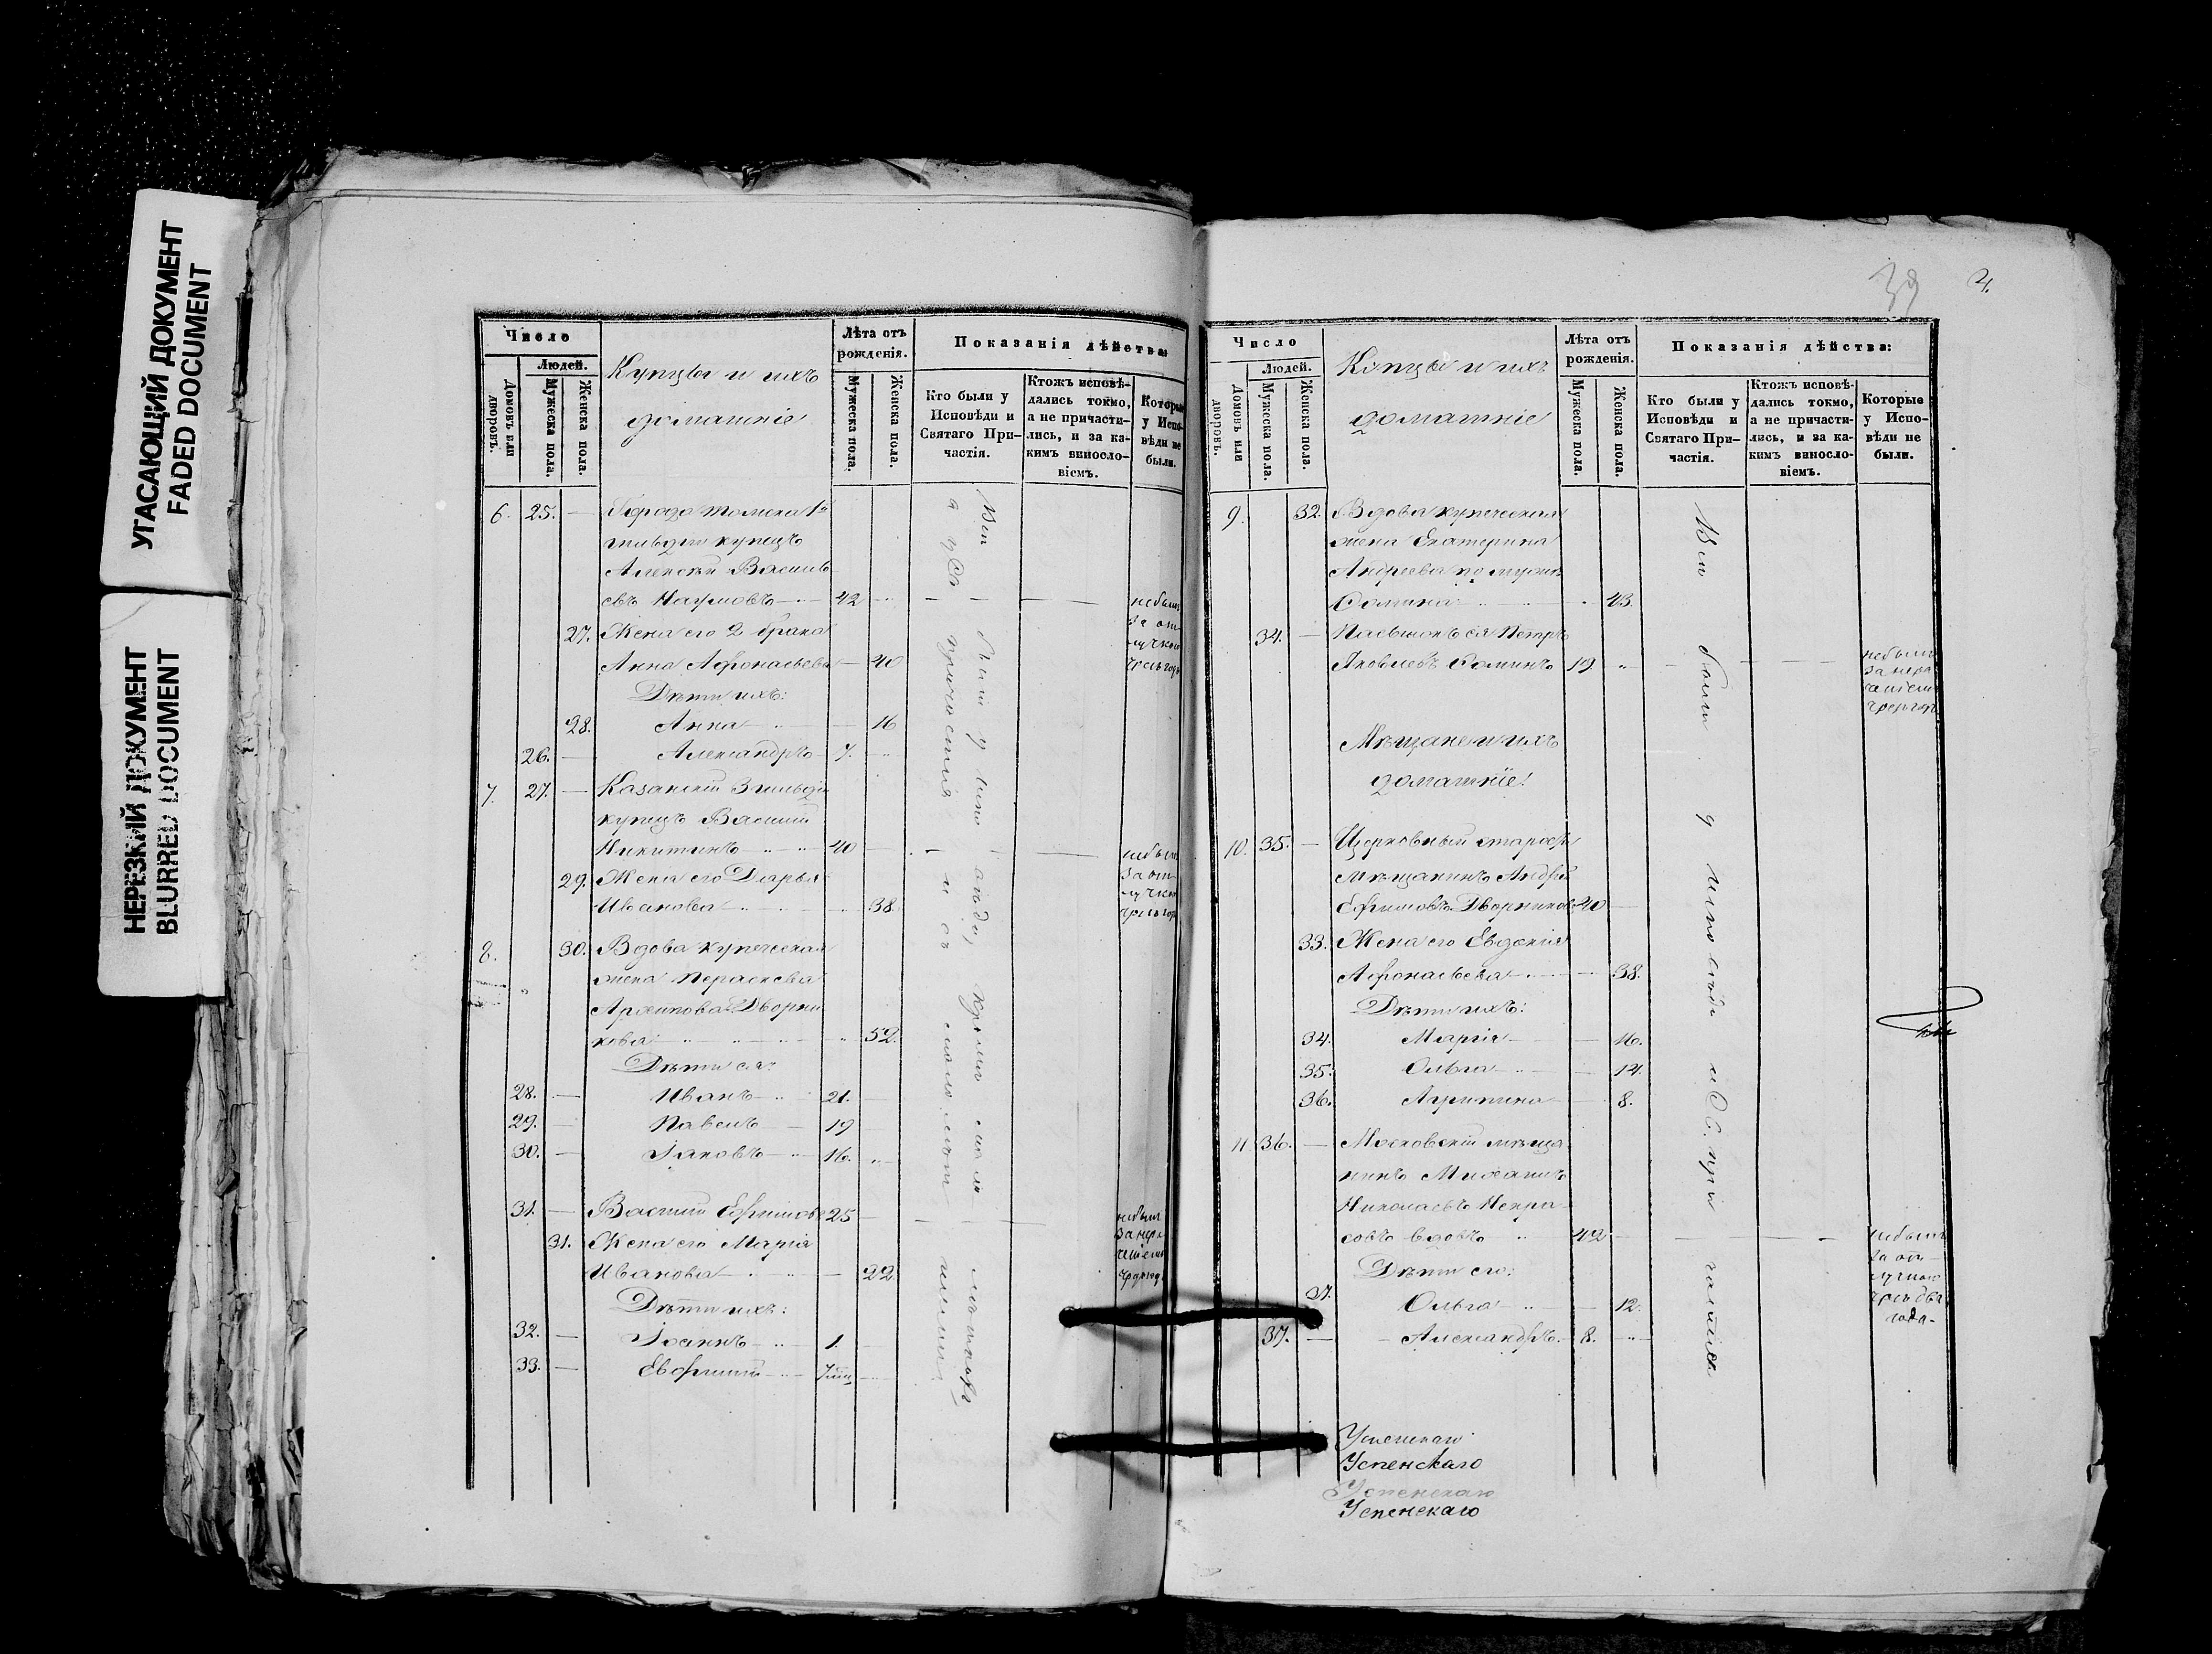 УГАСАЮЩИЙ ДОКУМЕНТ
FADED DOCUMENT
НЕРЕЗКИЙ ДОКУМЕНТ
BLURRED DOCUMENT
Число
Людей.
Домовъ или дворовъ.
Мужеска пола.
Женска пола.
Купцы и ихъ
домашніе
Лѣта отъ
рожденія.
Мужеска пола.
Женска пола.
Показанія дѣйства:
Кто были у
Исповѣди и
Святаго При-
частія.
Ктожъ исповѣ-
дались токмо,
а не причасти-
лись, и за ка-
кимъ винosло-
віемъ.
Которые
у Испо-
вѣди не
были.
6. 25. — Города Томска 1й
гильдіи купецъ
Алексѣй Василь-
евъ Наумовъ 42
небылъ
за от-
лучкою
27. Жена его 2 брака
Анна Афонасьева — 40
Дѣти ихъ:
28. Анна — 16
26. — Александръ 7.
7. 27. — Казанскій 3 гильдіи
купецъ Василій
Никитинъ 40 —
небылъ
за от-
лучкою
29. Жена его Дарья
Иванова 38
8. 30. Вдова купеческая
жена Параскева
Архипова Дворни-
кова 52.
Дѣти ея:
28. — Иванъ 21. —
29. — Павелъ 19
30. — Іаковъ 16.
31. — Василій Ефимовъ 25 —
небылъ
31. Жена его Марія
Иванова — 22
Дѣти ихъ:
32. — Іоаннъ 1.
33. — Евфимій
Всѣ были у исповѣди, кромѣ
причастія
39
4.
Число
Людей.
Домовъ или дворовъ.
Мужеска пола.
Женска пола.
Купцы и ихъ
домашніе
Лѣта отъ
рожденія.
Мужеска пола.
Женска пола.
Показанія дѣйства:
Кто были у
Исповѣди и
Святаго При-
частія.
Ктожъ исповѣ-
дались токмо,
а не причасти-
лись, и за ка-
кимъ винosло-
віемъ.
Которые
у Испо-
вѣди не
были.
9. 32. Вдова купеческая
жена Екатерина
Андреева по мужѣ
Сомина 43
34. — Пасынокъ ея Петръ
Яковлевъ Соминъ 19
небылъ
Мѣщане и ихъ
домашніе:
10. 35. — Церковный староста
мѣщанинъ Андрей
Ефимовъ Дворниковъ 40 —
33. Жена его Евдокія
Афонасьева 38.
Дѣти ихъ:
34. Марія — 16.
35. Ольга 14.
36. Агрипина 8.
11 36. — Московскій мѣща-
нинъ Михаилъ
Николаевъ Некра-
совъ вдовъ 42
небылъ
за от-
лучкою
Дѣти его:
37. Ольга 12.
37. — Александръ 8.
Всѣ были у исповѣди
Успенскаго
Успенскаго
Успенскаго
Успенскаго